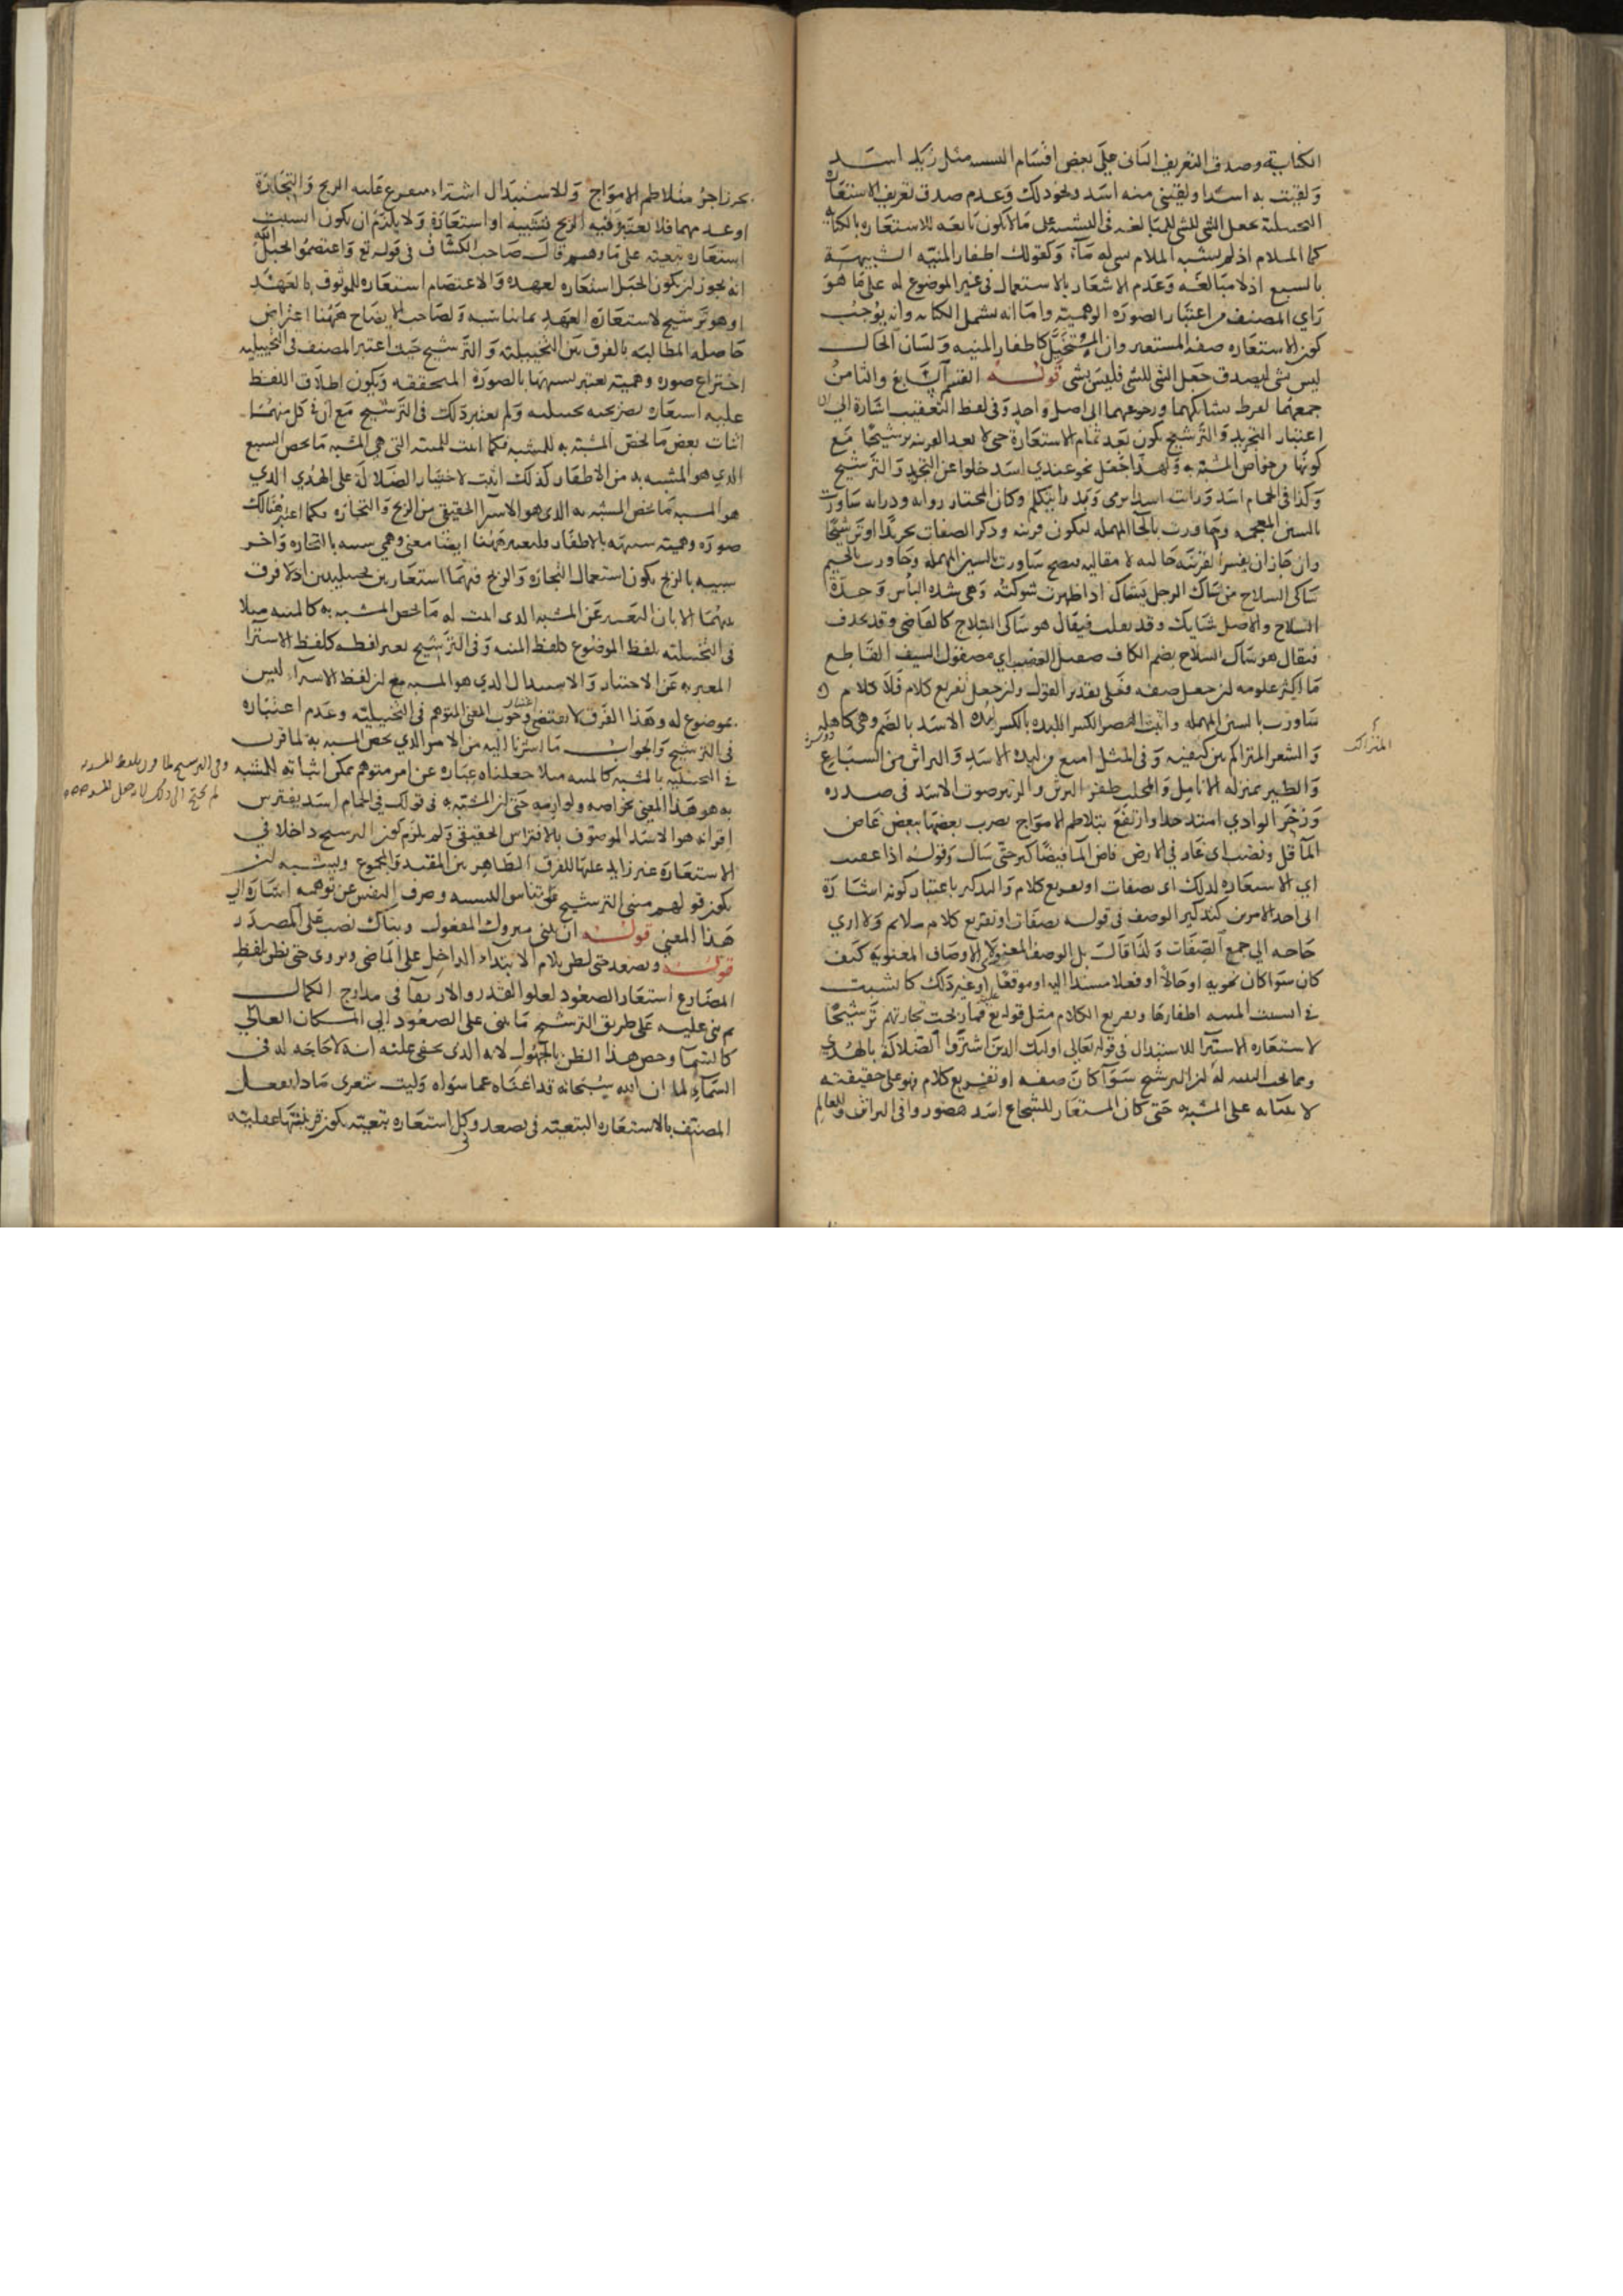 الكناية وصدق التعريف الثاني على بعض اقسام التشبيه مثل زيد اسد
ولقيت به اسدا ولقيني منه اسد ونحو ذلك وعدم صدق تعريف الاستعارة
التخييلية بجعل الشي للشي للمبالغة في التشبيه على ما لا يكون تابعه للاستعاره بالكناية
كما الملام اذ لم يشبه الملام بشي له ماء وكقولك اظفار المنية الشبيهة
بالسبع اذ لا مبالغة وعدم الاشعار بالاستعمال في غير الموضوع له على ما هو
راي المصنف من اعتبار الصوره الوهمية واما انه يشمل الكنايه وانه يوجب
كون الاستعاره صفه المستعير وان المتخيل كاظفار المنيه ولسان الحال
ليس بشي ليصدق جعل الشي للشي فليس بشي قوله القسم السابع والثامن
جمعهما لفرط تشابكهما ورجوعهما الى اصل واحد وفي لفظ التعقيب اشارة الى ان
اعتبار التجريد والترشيح يكون بعد تمام الاستعارة حتى لا يعد القرينه ترشيحا مع
كونها من خواص المشبه به ولهذا جعل نحو عندي اسد خلوا عن التجريد والترشيح
وكذا في الحمام اسد ورايت اسدا يرمي وبدر يتكلم وكان المختار روايه ودرايه ساورت
بالسين المعجمه وحاورت بالحا المهمله ليكون قرينه وذكر الصفات تجريدا او ترشيحا
وان جاز ان يفسر القرينه حاليه لا مقاليه فيصح ساورت بالسين المهمله وجاورت بالجيم
شاكي السلاح من شاك الرجل يشاك اذا ظهرت شوكته وهي شده الباس وحدة
السلاح والاصل شايك وقد يقلب فيقال هو شاكي السلاح كالقاضي وقد يحذف
فيقال هو شاك السلاح بضم الكاف صقيل العضب اي مصقول السيف القاطع
ما اكثر علومه ان جعل صفه فعلى تقدير القول وان جعل تفريع كلام فلا كلام
ساورت بالسين المهمله اللبده بالكسر لبده الاسد بالضم وهي كاهله
والشعر المتراكم بين كتفيه وفي المثل امنع من لبدة الاسد والبراثن من السباع
والطير بمنزله الانامل والمخلب ظفر البرثن والزئير صوت الاسد في صدره
وزخر الوادي امتد جدا وارتفع بتلاطم الامواج يضرب بعضها ببعض غاض
الما قل ونضب اي غار في الارض فاض الما فيضا كثر حتى سال وقوله اذا عقبت
اي الاستعاره لذلك اي بصفات او تفريع كلام والتذكير باعتبار كونه اشارة
الى احد الامرين كتذكير الوصف في قوله بصفات او تفريع كلام ملائم ولا اري
حاجه الي جمع الصفات ولذا قالت بل الوصف المعنوي الاوصاف المعنوية كيف
كان سوا كان نحويه او حالا او فعلا مسندا اليه او موقعا عليه او غير ذلك كما نشبت
في انشبت المنيه اظفارها وتفريع الكلام مثل قوله تع فما ربحت تجارتهم ترشيحا
لاستعاره الاشترا للاستبدال في قوله تعالى اوليك الذين اشتروا الضلالة بالهدى
ومما يجب التنبه له ان الترشيح سوآ كان صفه او تفريع كلام فهو على حقيقته
لابتنائه على المشبه به حتى كان المستعار للشجاع اسد هصور وافي البراثن وللعالم
المتراكب
بحر زاخر متلاطم الامواج وللاستبدال اشتراء متفرع عليه الربح والتجارة
او عدمهما فلا يعتبر فيه الربح تشبيه او استعارة ولا يلزم ان يكون انشبت
استعاره تبعيه على ما وهم قال صاحب الكشاف في قوله تع واعتصموا بحبل الله
انه يجوز ان يكون الحبل استعاره لعهده والاعتصام استعاره للوثوق بالعهد
او هو ترشيح لاستعارة العهد بما يناسبه ولصاحب الايضاح ههنا اعتراض
حاصله المطالبه بالفرق بين التخييلية والترشيح حيث اعتبر المصنف في التخييليه
اختراع صوره وهمية يعتبر تشبيهها بالصورة المتحققه ويكون اطلاق اللفظ
عليه استعاره تصريحيه تخييليه ولم يعتبر ذلك في الترشيح مع ان في كل منهما
اثبات بعض ما يخص المشبه به للمشبه فكما اثبت للمنيه التي هي المشبه ما يخص السبع
الذي هو المشبه به من الاظفار كذلك اثبت لاختيار الضلالة على الهدي الذي
هو المشبه ما يخص المشبه به الذي هو الاشترا الحقيقي من الربح والتجاره فكما اعتبر هنالك
صوره وهميه شبيهه بالاظفار فليعتبر ههنا ايضا معنى وهمي شبيه بالتجاره واخر
شبيه بالربح يكون استعمال التجاره والربح فيهما استعارتين تخييليتين اذ لا فرق
بينهما الا بان التعبير عن المشبه الذي اثبت له ما يخص المشبه به كالمنيه مثلا
في التخييليه بلفظ الموضوع كلفظ المنيه وفي الترشيح بغير لفظه كلفظ الاشترا
المعبر به عن الاختيار والاستبدال الذي هو المشبه مع ان لفظ الاشترا ليس
بموضوع له وهذا الفرق لا يقتضي وجوب اعتبار المعنى المتوهم في التخييليه وعدم اعتباره
في الترشيح والجواب ما اشرنا اليه من ان الامر الذي يخص المشبه به لما قرن
في التخييليه بالمشبه كالمنيه مثلا جعلناه عبارة عن امر متوهم يمكن اثباته للمشبه
به هو هذا المعنى بخواصه ولوازمه حتى ان المشبه به في قولك في الحمام اسد يفترس
اقرانه هو الاسد الموصوف بالافتراس الحقيقي ولم يلزم كون الترشيح داخلا في
الاستعارة غير زايد عليها للفرق الظاهر بين المقيد والمجموع
يكون قولهم مبنى الترشيح على تناسي التشبيه وصرف النفس عن توهمه اشارة الي
هذا المعنى قوله ان يبنى متروك المفعول وبناك نصب على المصدر
قوله ويصعد حتى لظن بلام الابتداء الداخل على الماضي ويروى حتى يظن بلفظ
المضارع استعار الصعود لعلو القدر والارتقا في مدارج الكمال
ثم بنى عليه على طريق الترشيح ما يبنى على الصعود الى المكان العالي
كالسما وخص هذا الظن بالجهول لانه الذي يخفى عليه انه لا حاجه له في
السماء لما ان الله سبحانه قد اغناه عما سواه وليت شعري ماذا يفعل
المصنف بالاستعاره التبعيه في يصعد وكل استعاره تبعيه يكون قرينتها عقليه
وفي الترشيح لما قرن بلفظ المشبه به
لم يحتج الى ذلك